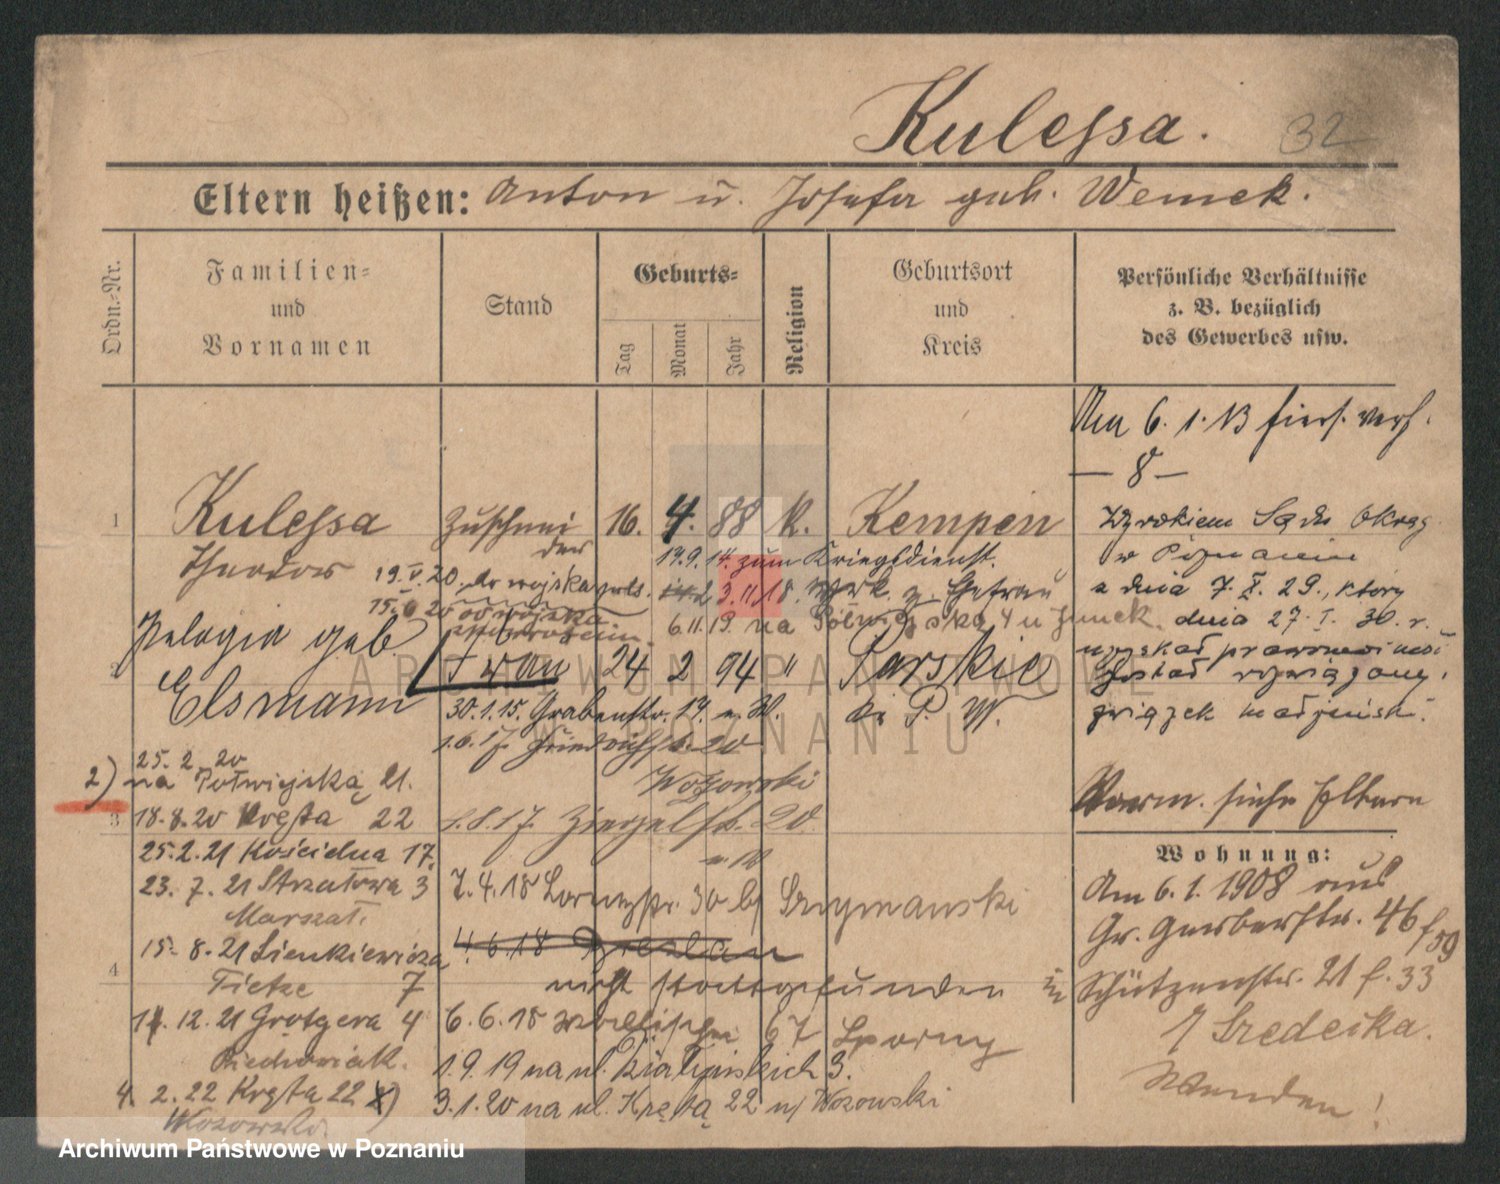 Kulessa. 32
Eltern heißen: Anton u. Josefa geb. Wemek.
Ordn.-Nr.
Familien- und Vornamen
Stand
Geburts-
Tag Monat Jahr
Religion
Geburtsort und Kreis
Persönliche Verhältnisse
z. B. bezüglich
des Gewerbes usw.
Am 6. 1. 13 hier verh.
— 8 —
1 Kulessa Zuschnei 16. 4. 88 k. Kempen
der
Theodor
17.9.14. zum Kriegsdienst.
19.V.20. do wojska
3.11.18. zur. v. Ehefrau
15. 20 od wojska
6.11.19. na Półwiejską 4
Wyrokiem Sądu Okręg
w Poznaniu
z dnia 7.X.29., który
dnia 27.I.30.r.
uzyskał prawomocność
został rozwiązany
związek małżeński.
Pelagia geb. Frau 24 2 94 " Parskie
2
Elsmann
30.1.15. Grabenstr. 17.
Kr. P. W.
1.6.17. Friedrichstr. 20
Wozowski
25.2.20
2) na Półwiejską 21.
3 18.8.20 Kręta 22
1.8.17. Ziegelstr. 20
25.2.21 Kościelna 17.
23. 7. 21 Strzałowa 3
Marszał.
7.4.18 Lorenzstr. 30 b/ Szymanski
15. 8. 21 Sienkiewicza
Tietze 7
4.6.18 Breslau
4 nicht stattgefunden
12.21 Grotgera 4
Piechowiak.
6.6.18 Wallischei 67 Sporny
1.9.19 na ul. 3.
4. 2. 22 Kręta 22 x)
Wozowski.
3.1.20 na ul. Kręta 22 u/ Wozowski
Vorm. siehe Eltern
Wohnung:
Am 6.1.1908 aus
Gr. Gerberstr. 46 f 59
in Schützenstr. 21 f. 33
Sredecka.
Wenden!
ARCHIWUM PAŃSTWOWE
W POZNANIU
Archiwum Państwowe w Poznaniu